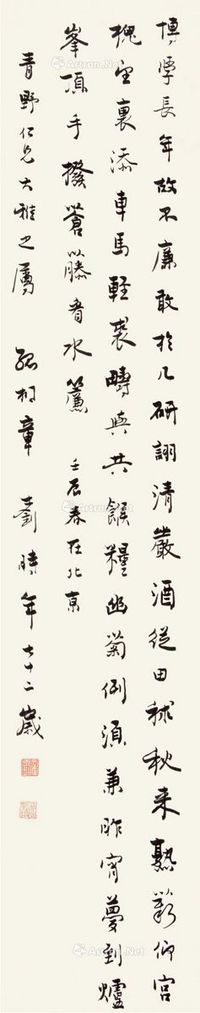 博學長年故不廉敢於几研詡清嚴酒從田秫秋來熟歡仰宮
槐望裏添車馬輕裘疇與共餱糧幽菊例須兼昨宵夢到爐
峯頂手撥蒼藤看水簾 壬辰春在北京
青野仁兄大雅之屬 孤桐章士釗時年七十二歲